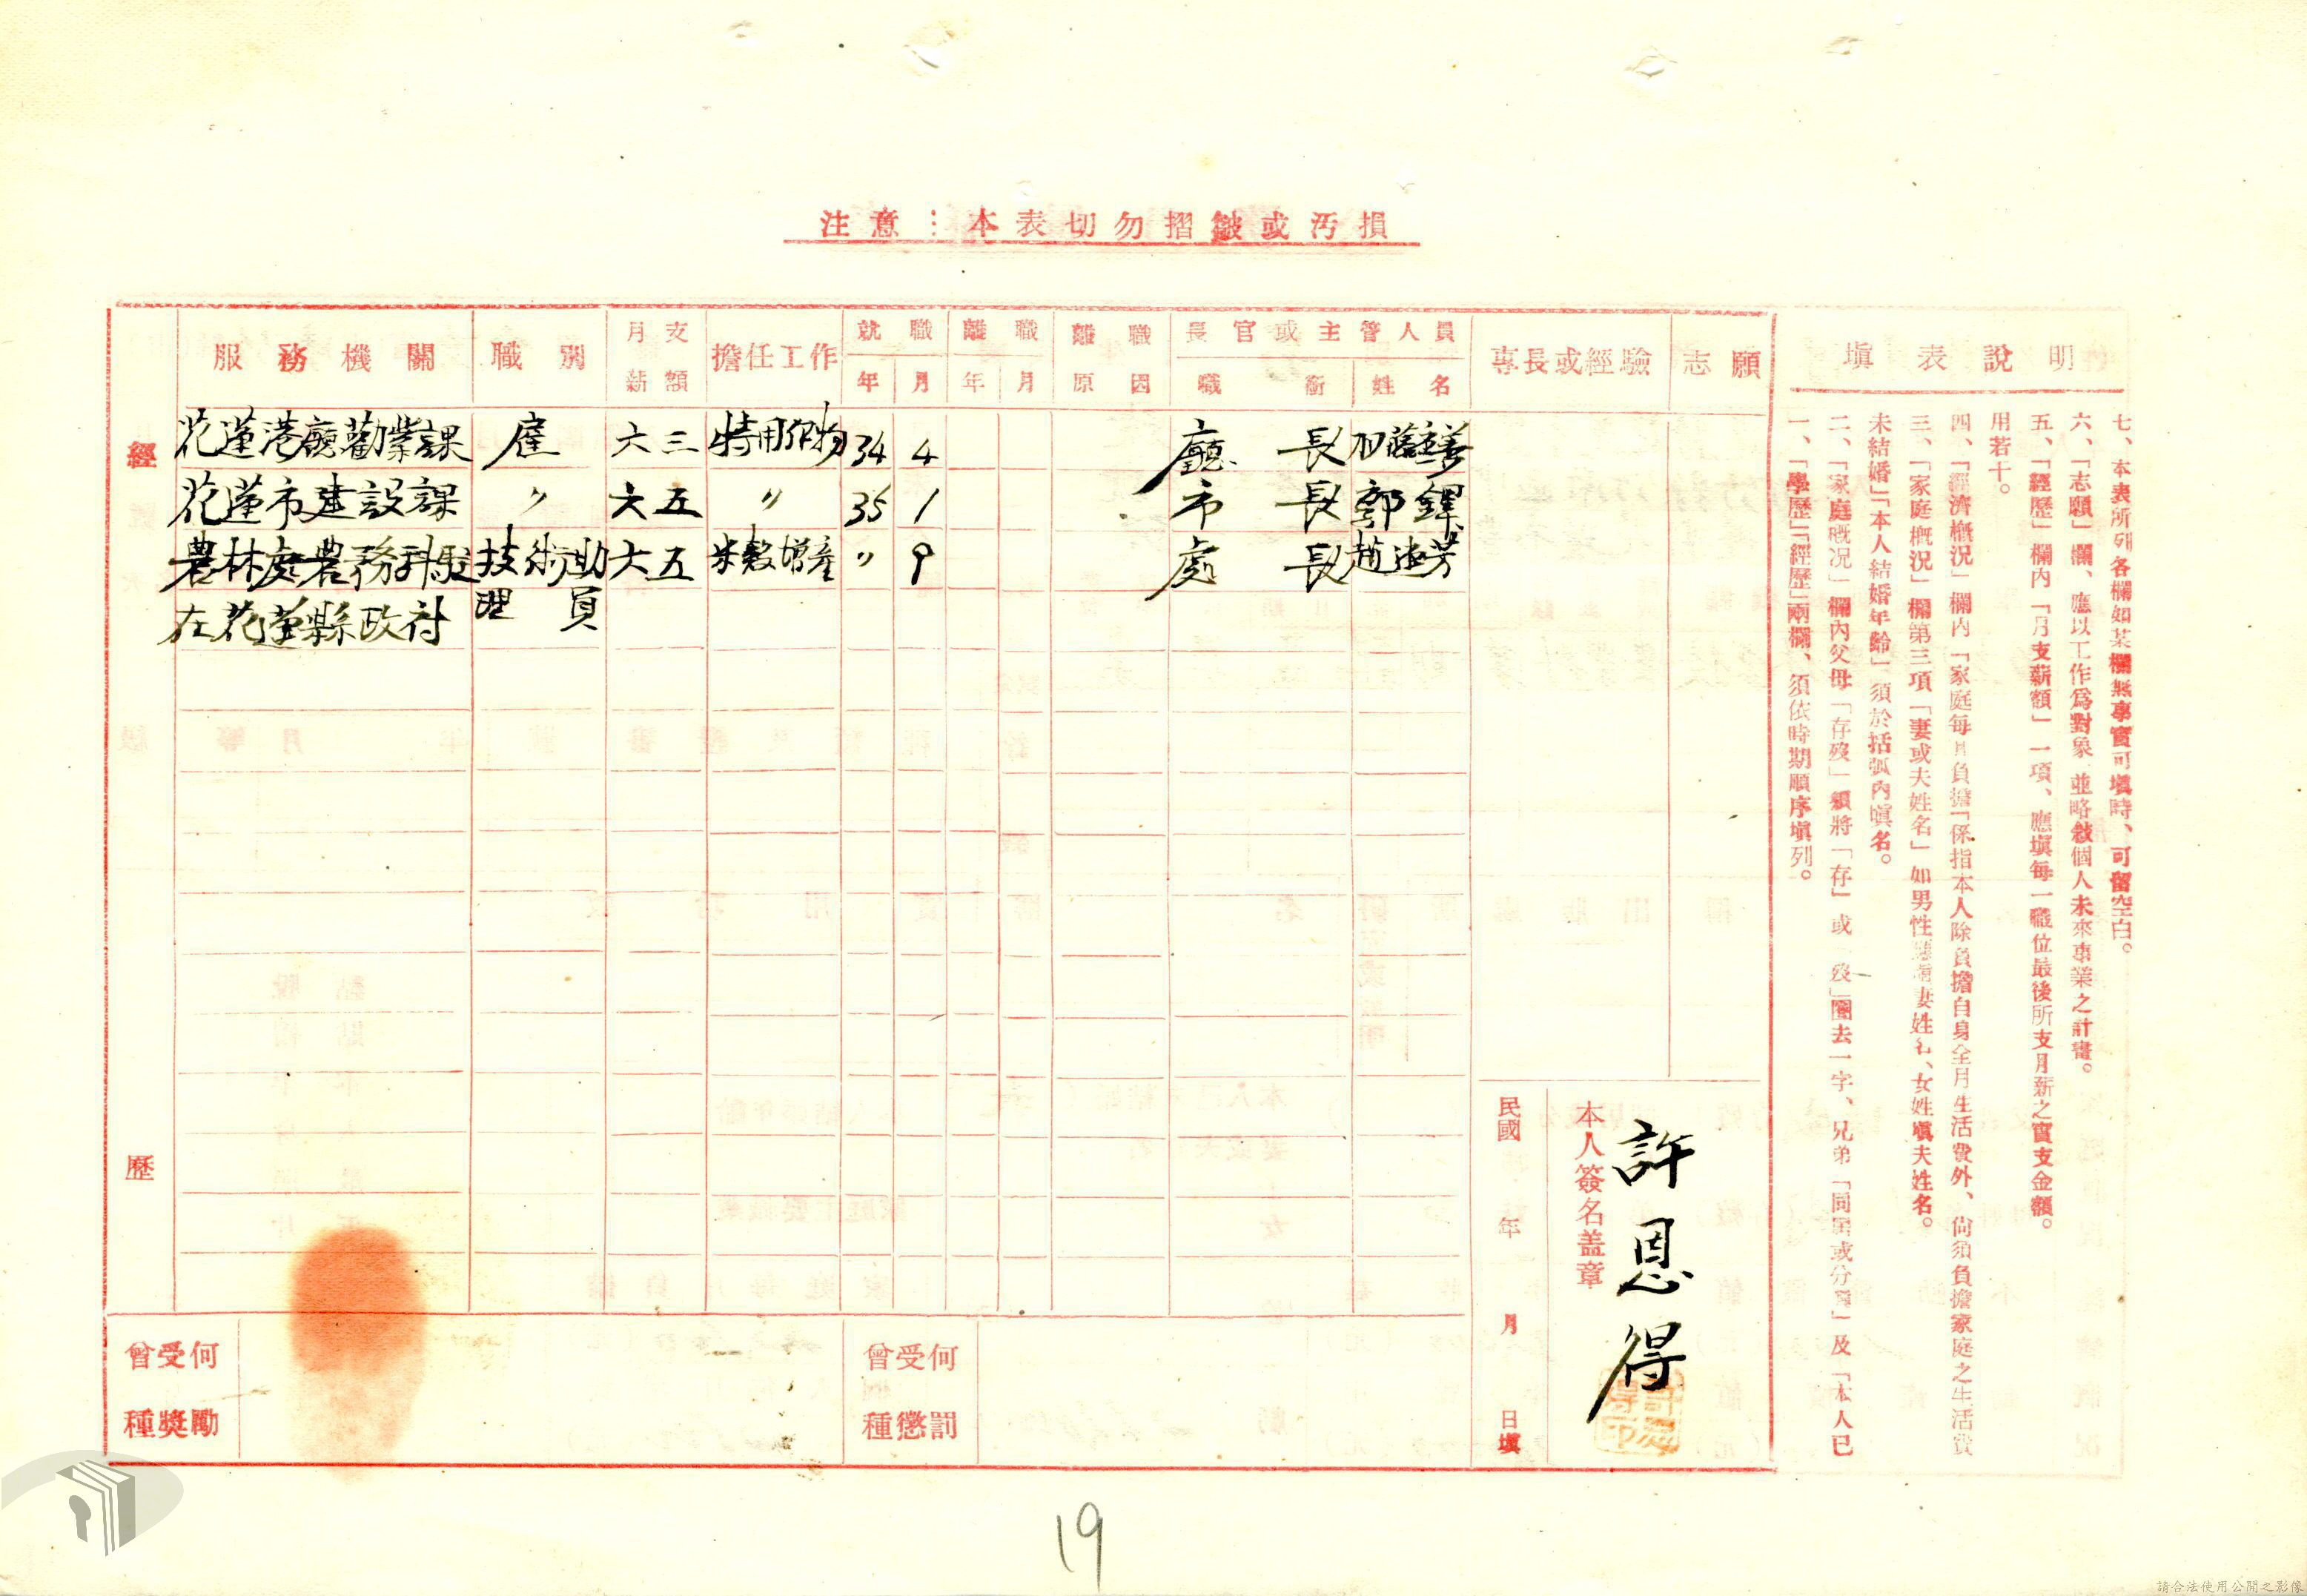 注意：本表切勿摺皺或汚損
經歷
服務機關
職別
月支薪額
擔任工作
就職
年 月
離職
年 月
離職原因
長官或主管人員
職銜 姓名
專長或經驗
志願
花蓮港廳勸業課 雇 六三 特用作物 34 4 廳長
花蓮市建設課 〃 六五 〃 35 1 市長 鄧鐸
農林處農務科駐 技術助 六五 米穀增產 〃 9 處長 趙連芳
在花蓮縣政府 理員
曾受何種獎勵
曾受何種懲罰
本人簽名盖章
許恩得
民國 年 月 日填
填表說明
一、「學歷」「經歷」兩欄、須依時期順序填列。
二、「家庭概况」欄內父母「存歿」須將「存」或「歿」圈去一字、兄弟「同居或分居」及「本人已
未結婚」「本人結婚年齡」須於括弧內填名。
三、「家庭概况」欄第三項「妻或夫姓名」如男性填妻姓名、女姓填夫姓名。
四、「經濟概况」欄內「家庭每月負擔」係指本人除負擔自身全月生活費外、尙須負擔家庭之生活費
用若干。
五、「經歷」欄內「月支薪額」一項、應填每一職位最後所支月薪之實支金額。
六、「志願」欄、應以工作爲對象、並略敍個人未來事業之計畫。
七、本表所列各欄如某欄無事實可填時、可留空白。
19
請合法使用公開之影像